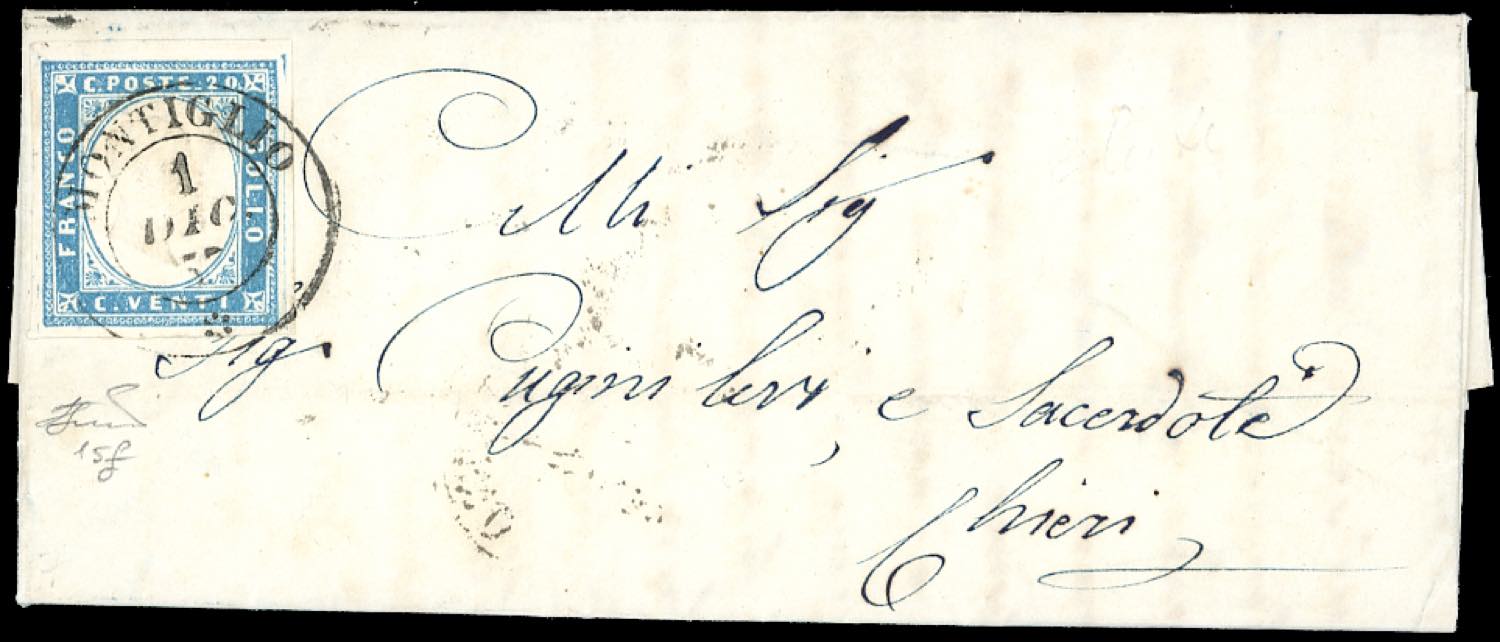 C. POSTE. 20.
FRANCO
BOLLO
C. VENTI
MONTIGLIO
1
DIC
57
Alli Sig
Sig Pugini Levi, e Sacerdote
Chieri
15f